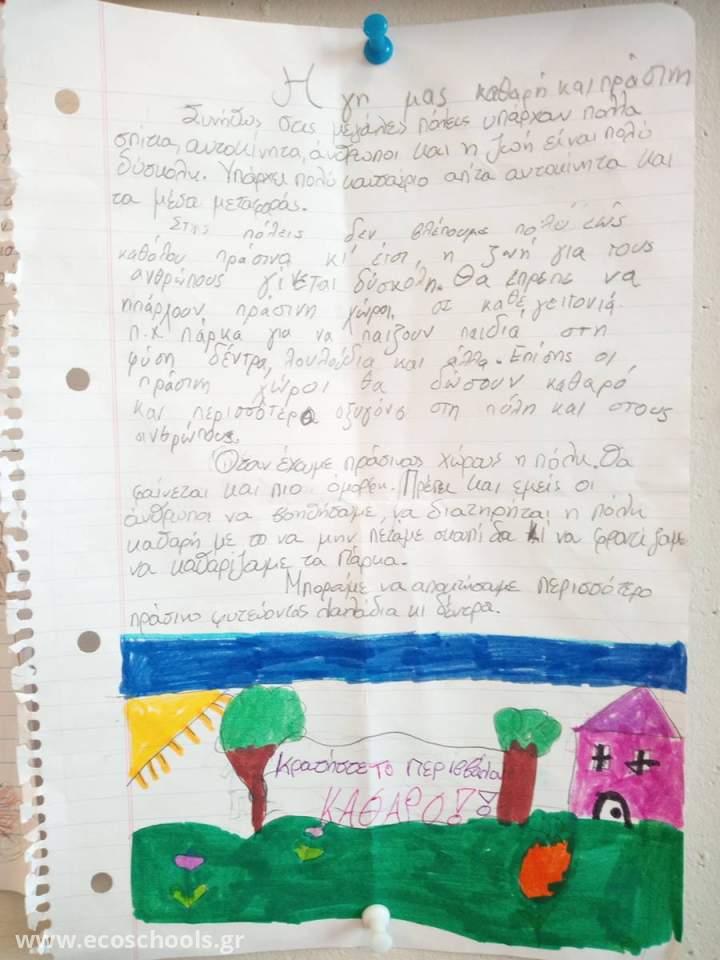 Η γη μας καθαρή και πράσινη
Συνήθως στις μεγάλες πόλεις υπάρχουν πολλά
σπίτια, αυτοκίνητα, άνθρωποι και η ζωή είναι πολύ
δύσκολη. Υπάρχει πολύ καυσαέριο απ'τα αυτοκίνητα και
τα μέσα μεταφοράς.
Στις πόλεις δεν βλέπουμε πολύ εώς
καθόλου πράσινο κι' έτσι, η ζωή για τους
ανθρώπους γίνεται δύσκολη. Θα έπρεπε να
ηπάρχουν πράσινη χώροι σε κάθε γειτονιά
π.χ πάρκα για να παίζουν παιδιά στη
φύση δέντρα, λουλούδια και άλλα. Επίσης οι
πράσινη χώροι θα δώσουν καθαρό
και περισσότερο οξυγόνο στη πόλη και στους
ανθρώπους.
Όταν έχουμε πράσινους χώρους η πόλη. Θα
φαίνεται και πιο όμορφη. Πρέπει και εμείς οι
άνθρωποι να βοηθήσουμε, να διατηρήται η πόλη
καθαρή με το να μην πετάμε σκουπίδα κι να φροντίζουμε
να καθαρίζουμε τα πάρκα.
Μπορούμε να αποκτήσουμε περισσότερο
πράσινο φυτεύοντας λουλούδια κι δέντρα.
Κρατήστε το περιβάλον
ΚΑΘΑΡΟ!!
www.ecoschools.gr